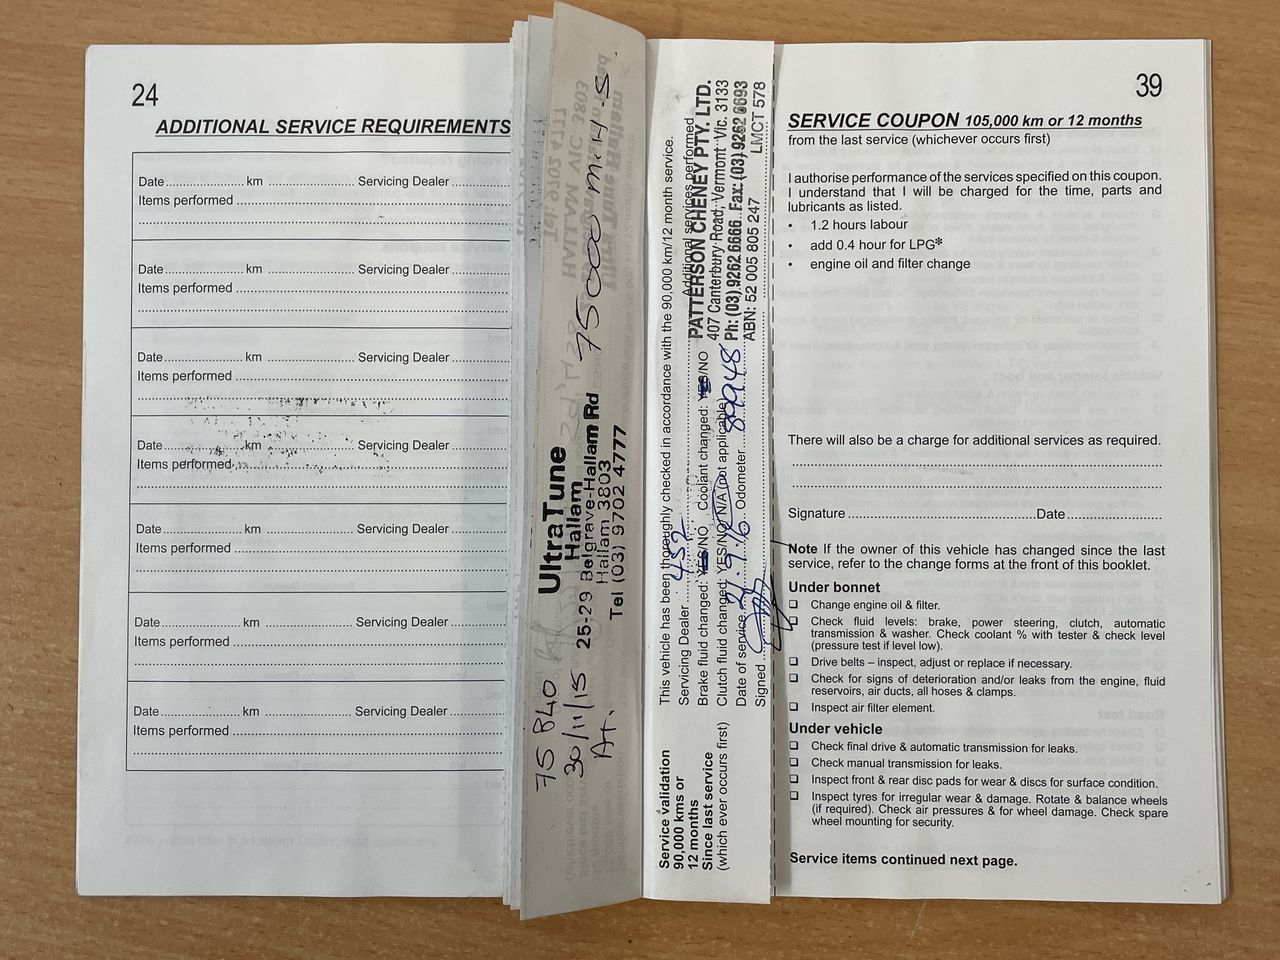 24
ADDITIONAL SERVICE REQUIREMENTS
Date.................... km ...................... Servicing Dealer
Items performed
Date.................... km ...................... Servicing Dealer
Items performed
Date.................... km ...................... Servicing Dealer
Items performed
Date.................... km ...................... Servicing Dealer
Items performed
Date.................... km ...................... Servicing Dealer
Items performed
Date.................... km ...................... Servicing Dealer
Items performed
Date.................... km ...................... Servicing Dealer
Items performed
75 840
75000
30/11/15
At.
UltraTune
Hallam
25-29 Belgrave-Hallam Rd
Hallam 3803
Tel (03) 9702 4777
Service validation
90,000 kms or
12 months
Since last service
(which ever occurs first)
This vehicle has been thoroughly checked in accordance with the 90,000 km/12 month service.
Servicing Dealer 452 Additional services performed
Brake fluid changed: YES/NO Coolant changed: YES/NO
Clutch fluid changed: YES/NO N/A (not applicable)
Date of service 21.9.16 Odometer 89948
Signed
PATTERSON CHENEY PTY. LTD.
407 Canterbury Road, Vermont Vic. 3133
Ph: (03) 9262 6666 Fax: (03) 9262 6693
ABN: 52 005 805 247 LMCT 578
39
SERVICE COUPON 105,000 km or 12 months
from the last service (whichever occurs first)
I authorise performance of the services specified on this coupon.
I understand that I will be charged for the time, parts and
lubricants as listed.
• 1.2 hours labour
• add 0.4 hour for LPG*
• engine oil and filter change
There will also be a charge for additional services as required.
Signature ........................................ Date....................
Note If the owner of this vehicle has changed since the last
service, refer to the change forms at the front of this booklet.
Under bonnet
❏ Change engine oil & filter.
❏ Check fluid levels: brake, power steering, clutch, automatic
transmission & washer. Check coolant % with tester & check level
(pressure test if level low).
❏ Drive belts – inspect, adjust or replace if necessary.
❏ Check for signs of deterioration and/or leaks from the engine, fluid
reservoirs, air ducts, all hoses & clamps.
❏ Inspect air filter element.
Under vehicle
❏ Check final drive & automatic transmission for leaks.
❏ Check manual transmission for leaks.
❏ Inspect front & rear disc pads for wear & discs for surface condition.
❏ Inspect tyres for irregular wear & damage. Rotate & balance wheels
(if required). Check air pressures & for wheel damage. Check spare
wheel mounting for security.
Service items continued next page.